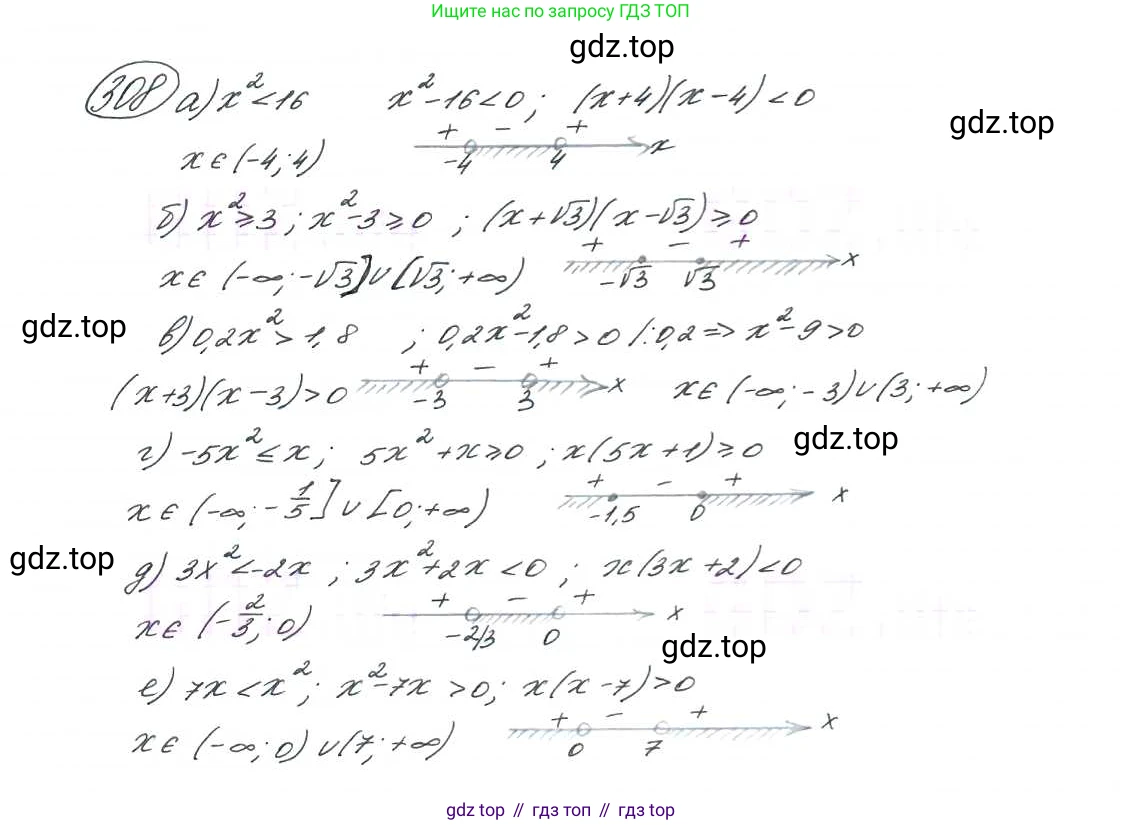 Ищите нас по запросу ГДЗ ТОП
gdz.top
308 а) x² < 16 x² - 16 < 0 ; (x+4)(x-4) < 0
gdz.top
+ - +
x ∈ (-4; 4) -4 4 x
б) x² ≥ 3 ; x² - 3 ≥ 0 ; (x+√3)(x-√3) ≥ 0
+ - +
x ∈ (-∞; -√3] ∪ [√3; +∞) -√3 √3 x
gdz.top
в) 0,2x² > 1,8 ; 0,2x² - 1,8 > 0 /:0,2 => x² - 9 > 0
+ - +
(x+3)(x-3) > 0 -3 3 x x ∈ (-∞; -3) ∪ (3; +∞)
г) -5x² ≤ x ; 5x² + x ≥ 0 ; x(5x+1) ≥ 0
gdz.top
+ - +
x ∈ (-∞; -1/5] ∪ [0; +∞) -1,5 0 x
gdz.top
д) 3x² < -2x ; 3x² + 2x < 0 ; x(3x+2) < 0
+ - +
x ∈ (-2/3; 0) -2/3 0 x
gdz.top
е) 7x < x² ; x² - 7x > 0 ; x(x-7) > 0
+ - +
x ∈ (-∞; 0) ∪ (7; +∞) 0 7 x
gdz top // гдз топ // gdz top